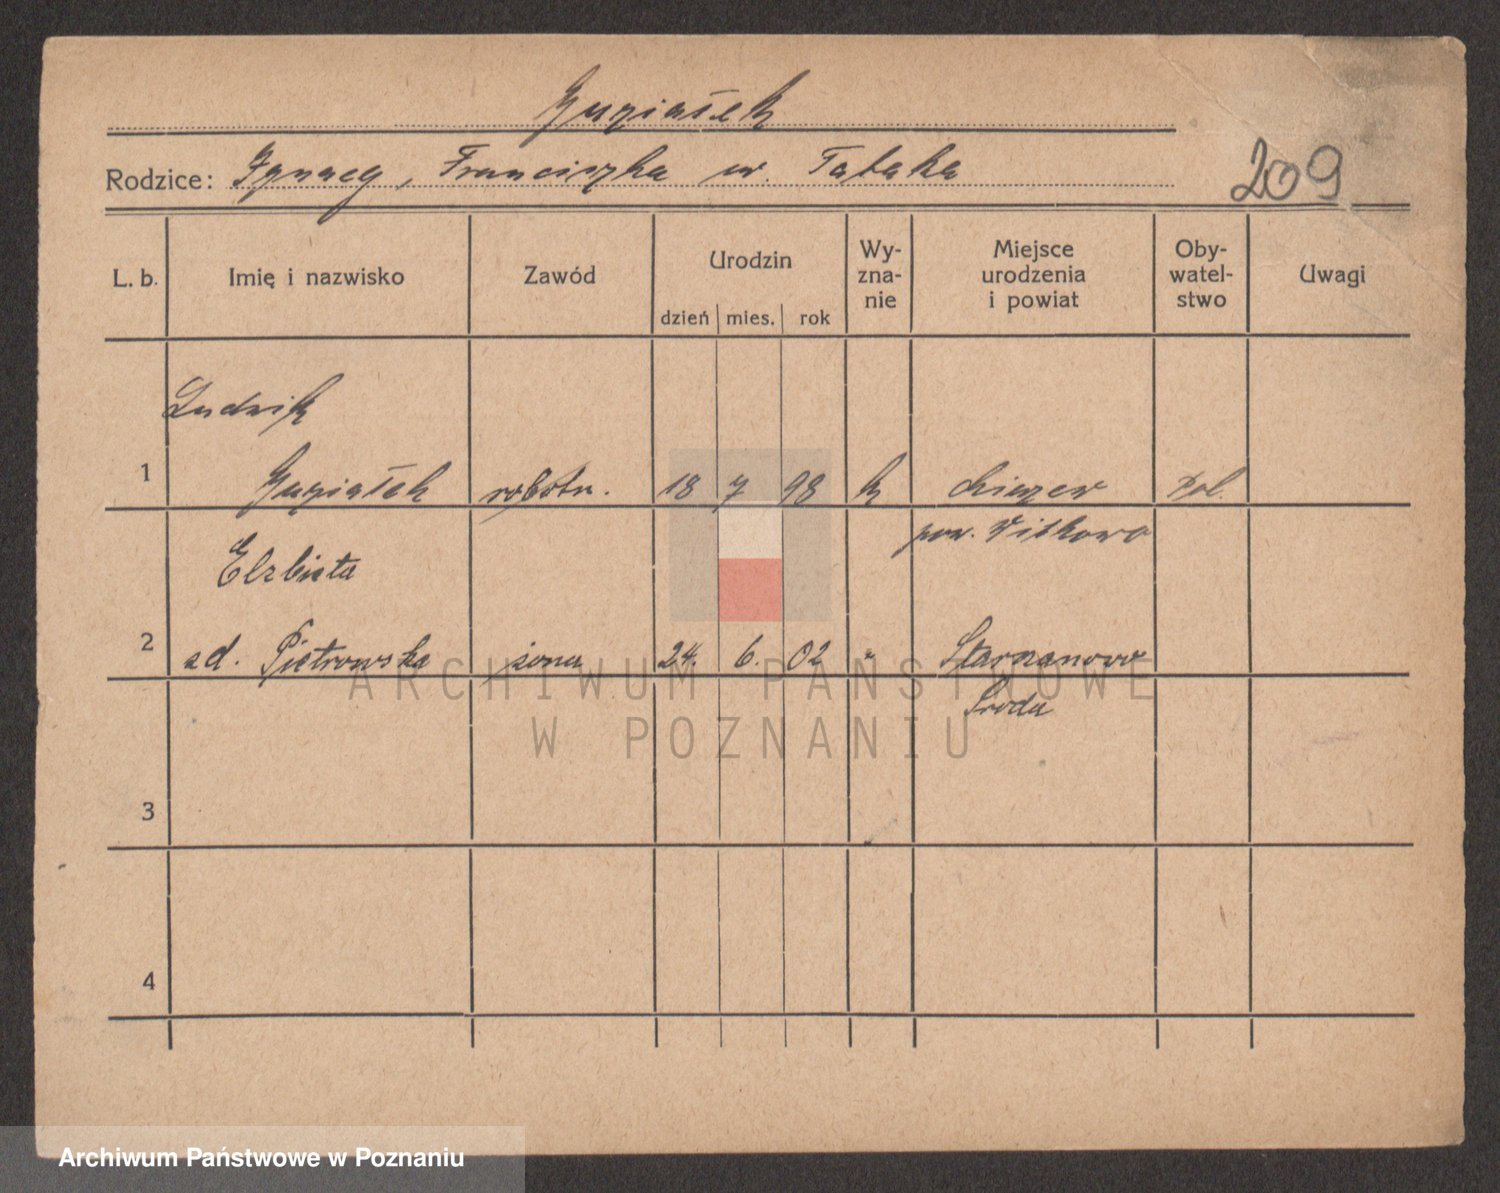 Guziałek
Rodzice: Ignacy, Franciszka ur. Tabaka
209
L. b. Imię i nazwisko Zawód Urodzin Wy-zna-nie Miejsce urodzenia i powiat Oby-watel-stwo Uwagi
dzień mies. rok
Ludwik
1 Guziałek robotn. 18 7 98 k Pol.
pow. Witkowo
Elżbieta
2 zd. Pietrowska żona 24. 6. 02 " Starzanowo
Środa
3
4
ARCHIWUM PAŃSTWOWE
W POZNANIU
Archiwum Państwowe w Poznaniu